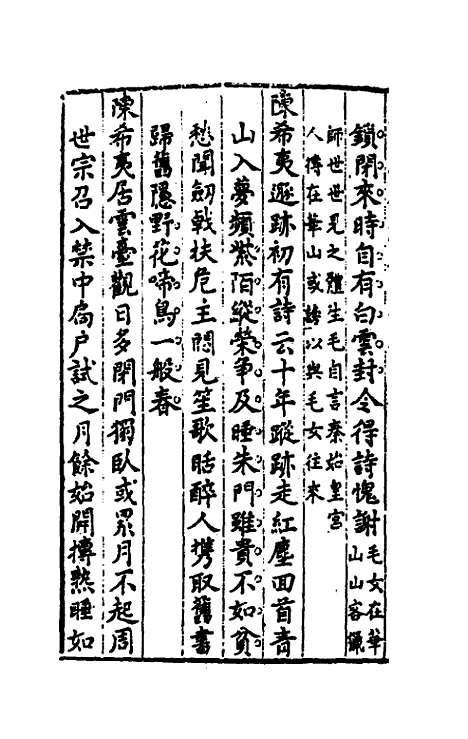 鎖閉來時自有白雲封令得詩愧謝毛女在華
山山客獵
師世世見之體生毛自言秦始皇宮
人摶在華山或詩以與毛女往來
陳希夷遯跡初有詩云十年蹤跡走紅塵回首青
山入夢頻紫陌縱榮争及睡朱門雖貴不如貧
愁聞劒戟扶危主悶見笙歌聒醉人携取舊書
歸舊隱野花啼鳥一般春
陳希夷居雲臺觀日多閉門獨臥或累月不起周
世宗召入禁中扃户試之月餘始開摶熟睡如